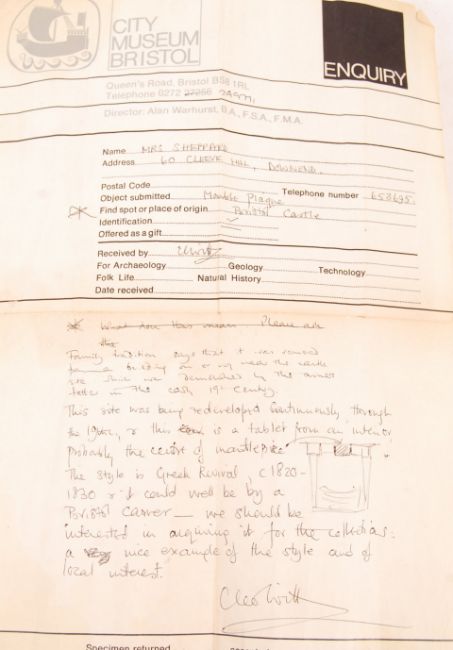 CITY
MUSEUM
BRISTOL
ENQUIRY
Queen's Road, Bristol BS8 1RL
Telephone 0272 27256 24971
Director: Alan Warhurst, B.A., F.S.A., F.M.A.
Name MRS SHEPPARD
Address 60 CLEEVE HILL, DOWNEND.
Postal Code
Object submitted Marble Plaque Telephone number 658695
Find spot or place of origin Bristol Castle
Identification
Offered as a gift
Received by
For Archaeology Geology Technology
Folk Life Natural History
Date received
What does this mean Please ask
the
Family tradition says that it was
on or near the castle
site which was demolished by the
in the early 19th Century.
This site was being redeveloped continuously through
the 19thC, & this is a tablet from an interior
Probably the centre of mantlepiece
The style is Greek Revival, c1820-
1830 & it could well be by a
Bristol Carver — we should be
interested in acquiring it for the collections:
a nice example of the style and of
local interest.
Cleo Witt
Specimen returned